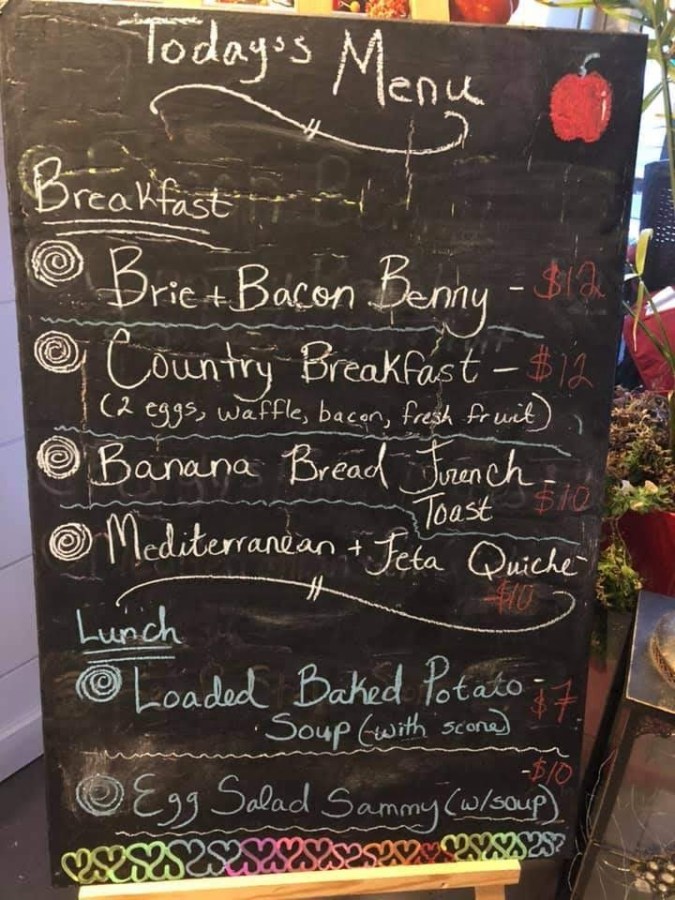 Today's Menu
Breakfast
Brie + Bacon Benny - $12
Country Breakfast - $12
(2 eggs, waffle, bacon, fresh fruit)
Banana Bread French -
Toast $10
Mediterranean + Feta Quiche -
$10
Lunch
Loaded Baked Potato - $7
Soup (with scone)
-$10
Egg Salad Sammy (w/soup)